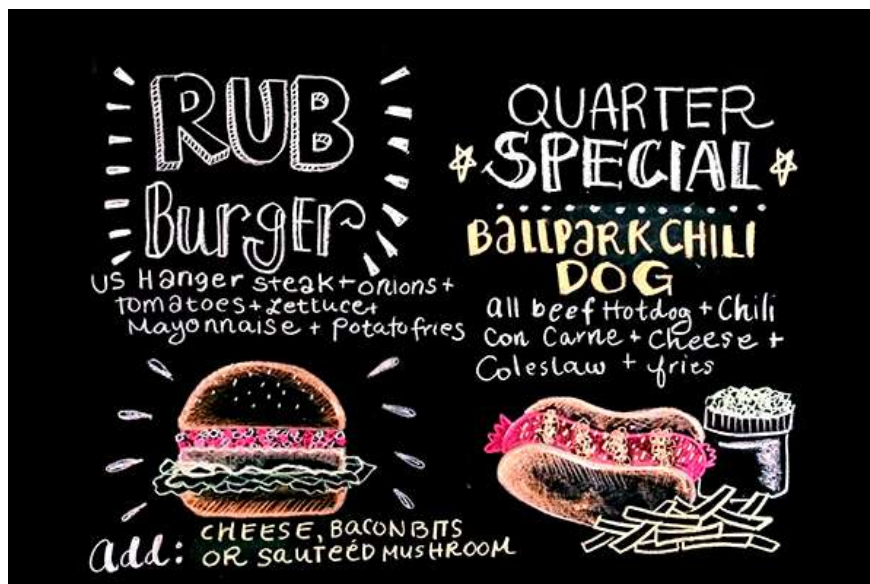 RUB
Burger
US Hanger steak + onions +
tomatoes + Lettuce +
Mayonnaise + Potato fries
add: CHEESE, BACON BITS
OR SautEéD MUSHROOM
QUARTER
SPECIAL
BallPaRK CHILI
DOG
all beef Hotdog + Chili
Con Carne + Cheese +
Coleslaw + fries